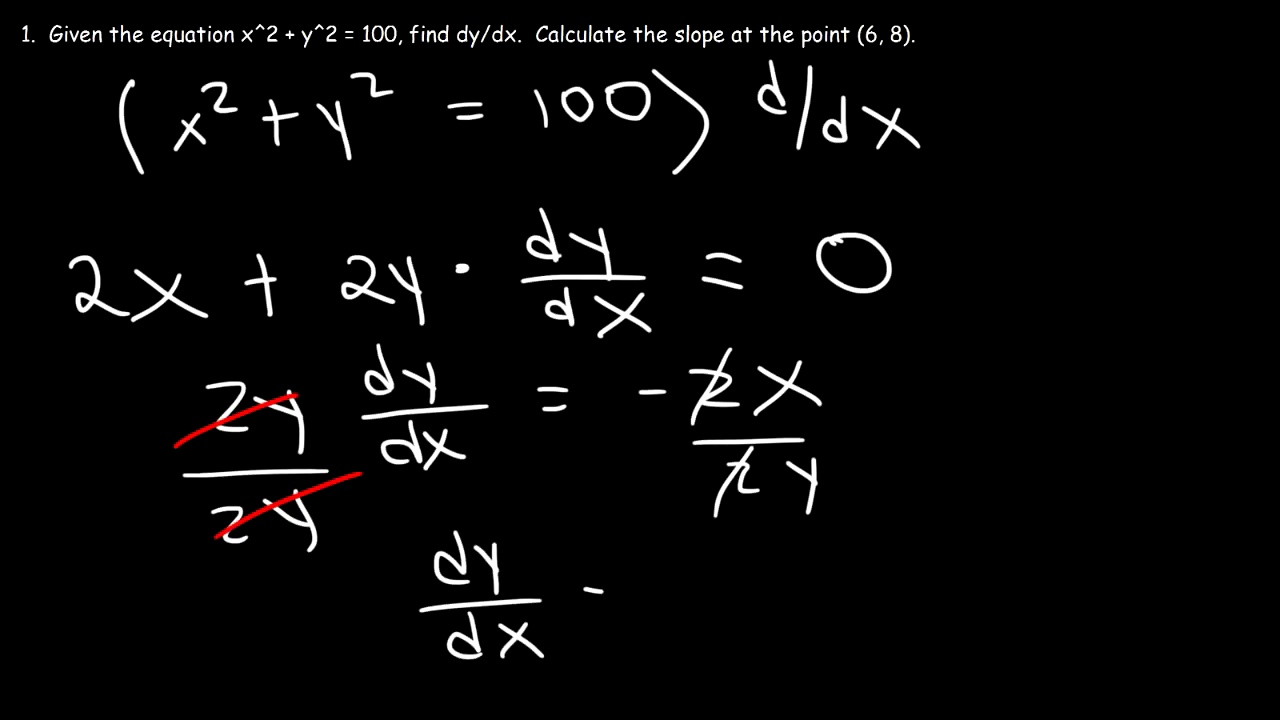 1. Given the equation x^2 + y^2 = 100, find dy/dx. Calculate the slope at the point (6, 8).
(x² + y² = 100) d/dx
2x + 2y · dy/dx = 0
2y/2y dy/dx = -2x/2y
dy/dx -